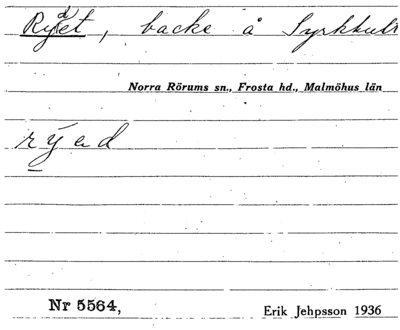 Rydet, backe å Syrkhult
Norra Rörums sn., Frosta hd., Malmöhus län
rýad
Nr 5564,
Erik Jehpsson 1936